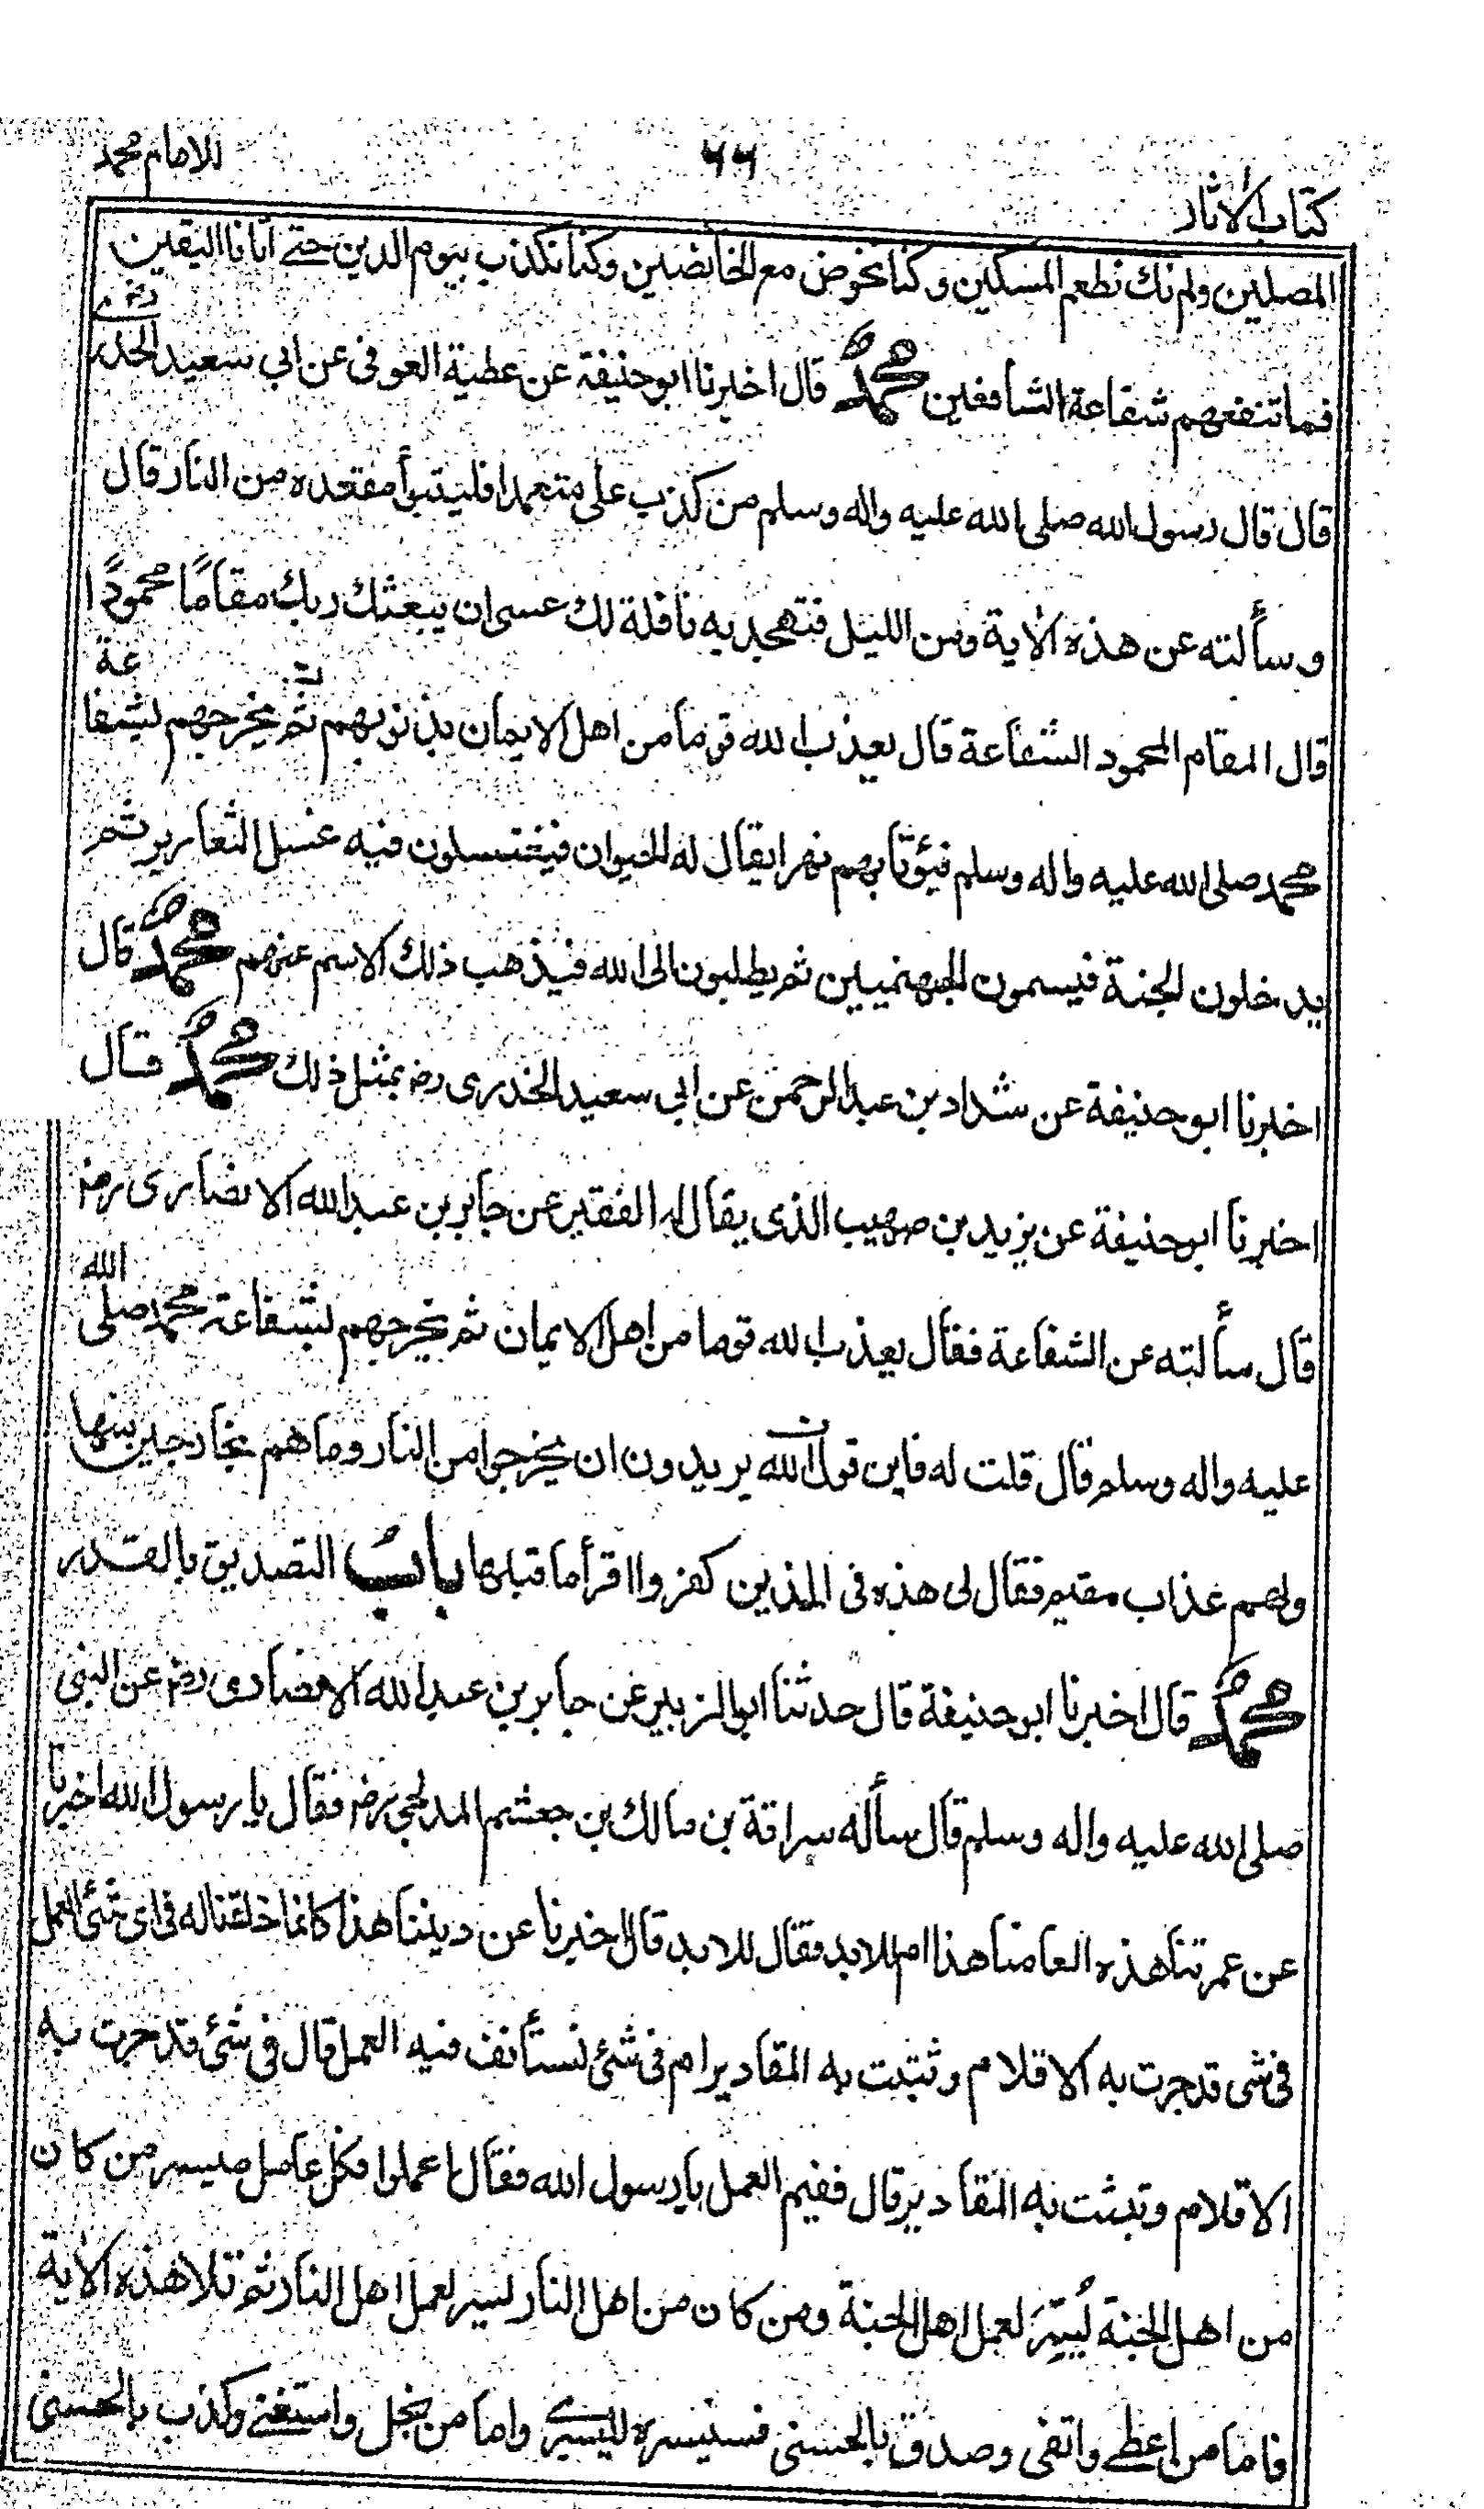 كتاب الاثار ٦٦ للامام محمد
المصلين ولم نك نطعم المسكين وكنا نخوض مع الخائضين وكنا نكذب بيوم الدين حتے اتانا اليقين
فما تنفعهم شفاعة الشافعين محمدٌ قال اخبرنا ابو حنيفة عن عطية العوفى عن ابي سعيد الخدرى رض
قال قال رسول الله صلى الله عليه واله وسلم من كذب على متعمدا فليتبوأ مقعده من النار قال
وسألته عن هذه الاية ومن الليل فتهجد به نافلة لك عسى ان يبعثك ربك مقامًا محمودًا
قال المقام المحمود الشفاعة قال يعذب الله قوما من اهل الايمان بذنوبهم ثم يخرجهم بشفاعة
محمد صلى الله عليه واله وسلم فيؤتا بهم نهرا يقال له الحيوان فيغتسلون فيه غسل الثعارير ثم
يدخلون الجنة فيسمون الجهنميين ثم يطلبون الى الله فيذهب ذلك الاسم عنهم محمدٌ قال
اخبرنا ابو حنيفة عن شداد بن عبد الرحمن عن ابي سعيد الخدرى رض بمثل ذلك محمدٌ قال
اخبرنا ابو حنيفة عن يزيد بن صهيب الذى يقال له الفقير عن جابر بن عبد الله الانصارى رض
قال سألته عن الشفاعة فقال يعذب الله قوما من اهل الايمان ثم يخرجهم بشفاعة محمد صلى الله
عليه واله وسلم قال قلت له فاين قول الله يريدون ان يخرجوا من النار وما هم بخارجين منها
ولهم عذاب مقيم فقال لى هذه فى الذين كفروا اقرأ ما قبلها بابٌ التصديق بالقدر
محمدٌ قال اخبرنا ابو حنيفة قال حدثنا ابو الزبير عن جابر بن عبد الله الانصارى رض عن النبى
صلى الله عليه واله وسلم قال سأله سراقة بن مالك بن جعشم المدلجي رض فقال يا رسول الله اخبرنا
عن عمرتنا هذه العامنا هذا ام للابد فقال للابد قال اخبرنا عن ديننا هذا كانما خلقنا له فى اى شئ العمل
فى شى قد جرت به الاقلام وثبتت به المقادير ام فى شئ نستأنف فيه العمل قال فى شئ قد جرت به
الاقلام وثبتت به المقادير قال ففيم العمل يا رسول الله فقال اعملوا فكل عامل ميسر من كان
من اهل الجنة يُسِّرَ لعمل اهل الجنة ومن كان من اهل النار يسر لعمل اهل النار ثم تلا هذه الاية
فاما من اعطے واتقى وصدق بالحسنى فسنيسره لليسرے واما من بخل واستغنے وكذب بالحسنى